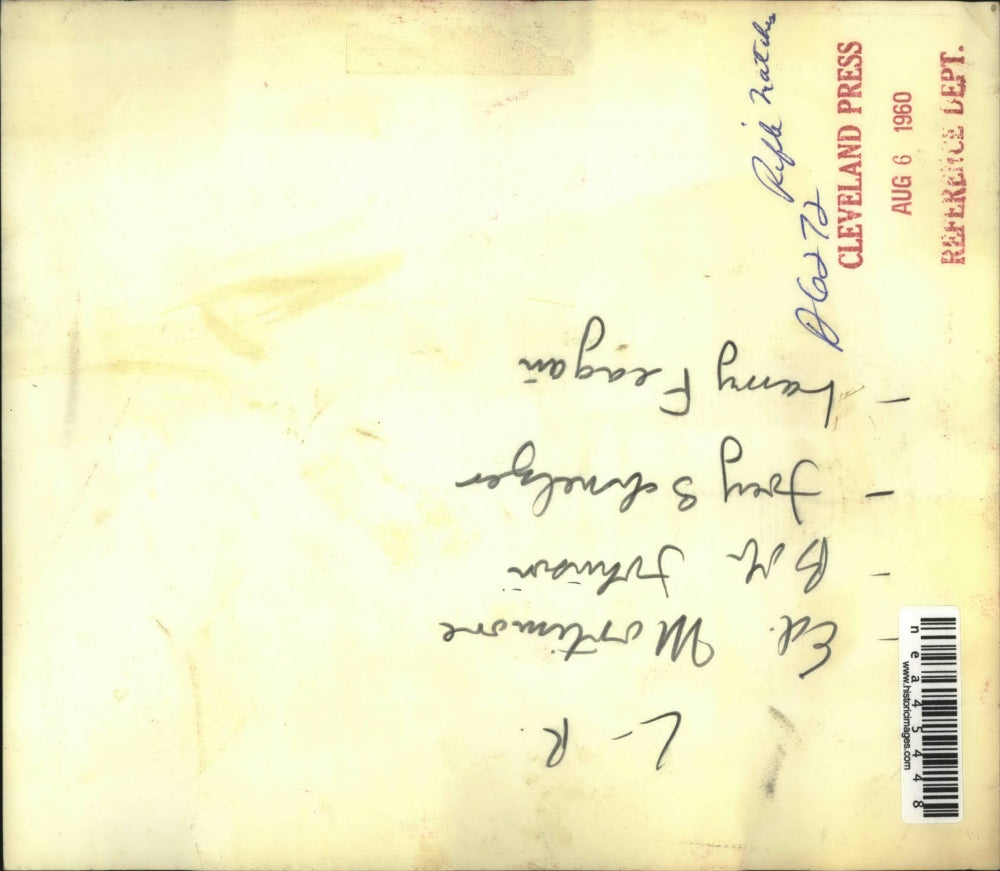 L - R.
- Ed. Mortimore
- Bill Johnson
- Joey Schnelzer
- Larry Feagan
D6272 Rifle Matches
CLEVELAND PRESS
AUG 6 1960
REFERENCE DEPT.
www.historicimages.com
nea45448